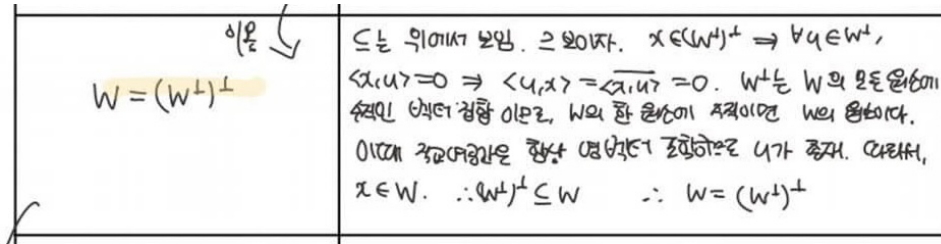 이용
W = (W⊥)⊥
⊆는 위에서 보임. ⊇ 보이자. x∈(W⊥)⊥ ⇒ ∀u∈W⊥,
<x,u>=0 ⇒ <u,x> = \overline{<x,u>} = 0. W⊥는 W의 모든 원소에
수직인 벡터 집합 이므로, W의 한 원소에 수직이면 W의 원소이다.
이때 직교여공간은 항상 영벡터 포함하므로 u가 존재. 따라서,
x∈W. ∴(W⊥)⊥⊆W ∴ W=(W⊥)⊥